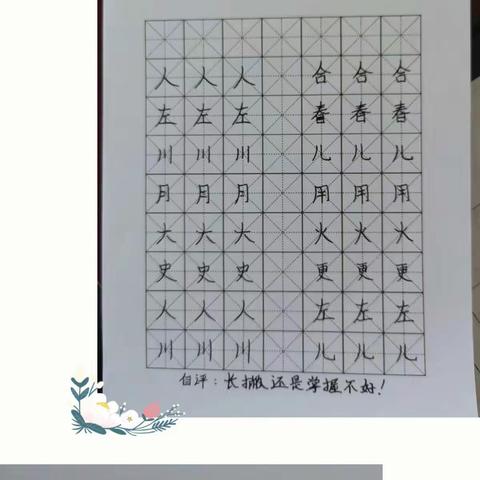 人人人 合合合
左左左 春春春
川川川 儿儿儿
月月月 用用用
大大大 火火火
史史史 更更更
人人人 左左左
川川川 儿儿儿
自评：长撇还是学握不好！